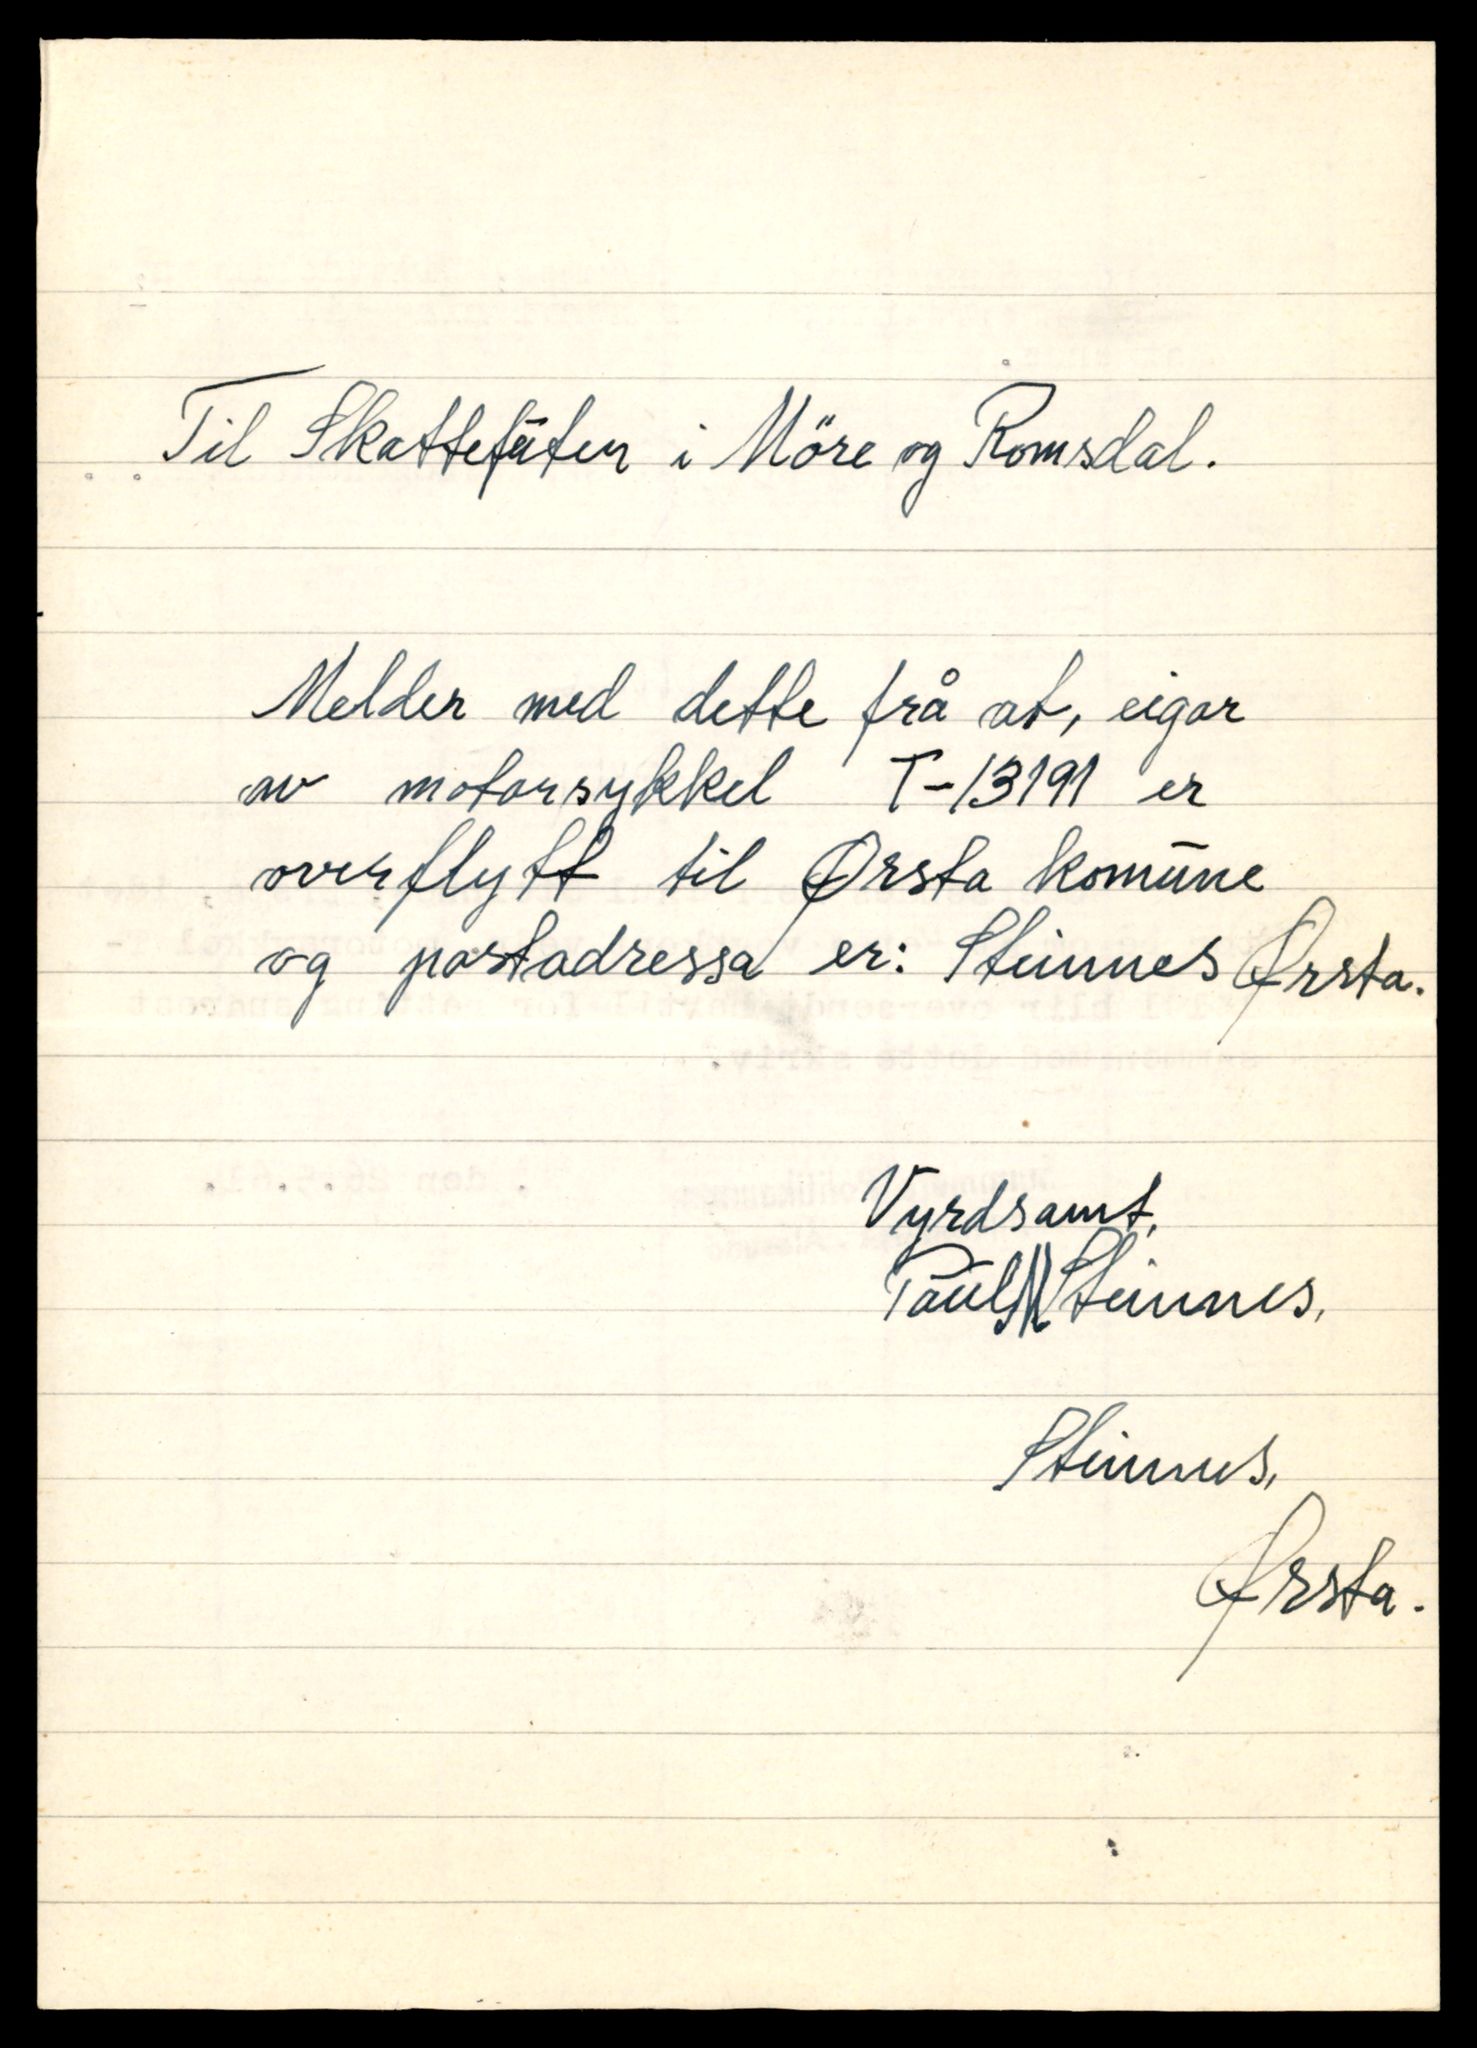 Til Skattefuten i Möre og Romsdal.
Melder med dette frå at, eigar
av motorsykkel T-13191 er
overflytt til Ørsta komune
og postadressa er: Steinnes Ørsta.
Vyrdsamt,
Paul Steinnes,
Steinnes,
Ørsta.